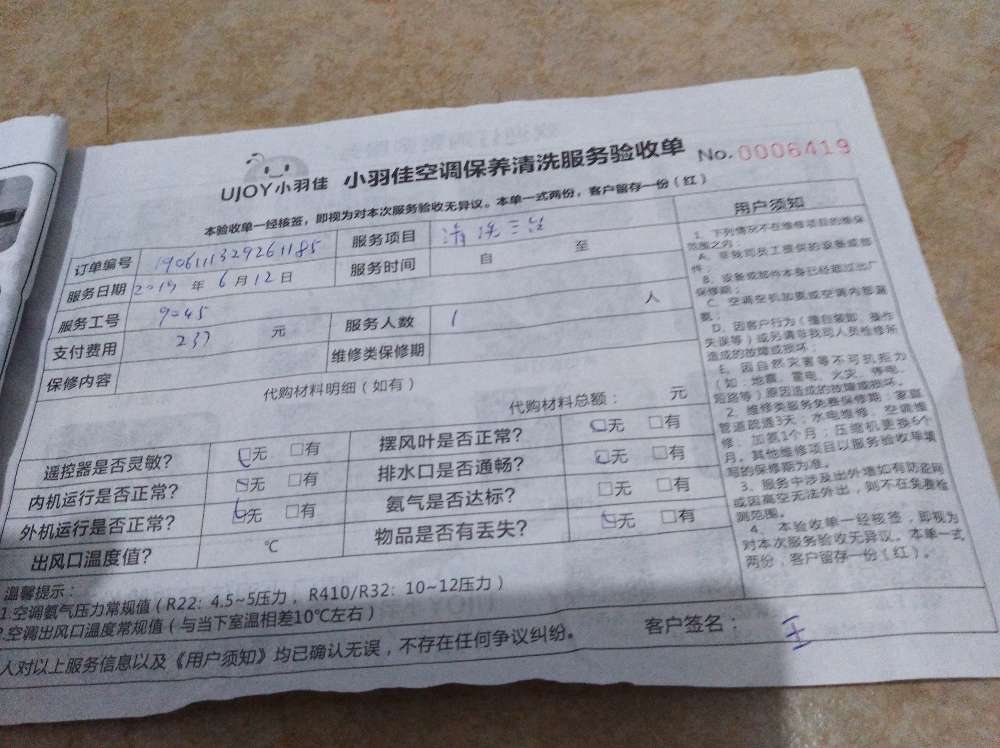 UJOY小羽佳 小羽佳空调保养清洗服务验收单 No.0006419
本验收单一经核签，即视为对本次服务验收无异议。本单一式两份，客户留存一份（红）
订单编号 1906111329261185 服务项目 清洗三台
服务日期 2019 年 6 月 12 日 服务时间 自 至
服务工号 9045 服务人数 1 人
支付费用 237 元 维修类保修期
保修内容
代购材料明细（如有）
代购材料总额： 元
遥控器是否灵敏？ □无 □有 摆风叶是否正常？ □无 □有
内机运行是否正常？ □无 □有 排水口是否通畅？ □无 □有
外机运行是否正常？ □无 □有 氨气是否达标？ □无 □有
出风口温度值？ ℃ 物品是否有丢失？ □无 □有
温馨提示：
1.空调氨气压力常规值（R22：4.5~5压力，R410/R32：10~12压力）
2.空调出风口温度常规值（与当下室温相差10℃左右）
人对以上服务信息以及《用户须知》均已确认无误，不存在任何争议纠纷。
客户签名： 王
用户须知
1、下列情况不在维修项目的维保
范围之内：
A、非我司员工提供的设备或部
件；
B、设备或部件本身已经超过出厂
保修期；
C、空调空机加氨或空调内部漏
氨；
D、因客户行为（擅自装卸、操作
失误等）或另请非我司人员检修所
造成的故障或损坏；
E、因自然灾害等不可抗拒力
（如：地震、雷电、火灾、停电、
短路等）原因造成的故障或损坏。
2、维修类服务免费保修期：家庭
管道疏通3天；水电维修、空调维
修、加氨1个月；压缩机更换6个
月。其他维修项目以服务验收单填
写的保修期为准。
3、服务中涉及出外墙如有防盗网
或因高空无法外出，则不在免费检
测范围。
4、本验收单一经核签，即视为
对本次服务验收无异议。本单一式
两份，客户留存一份（红）。